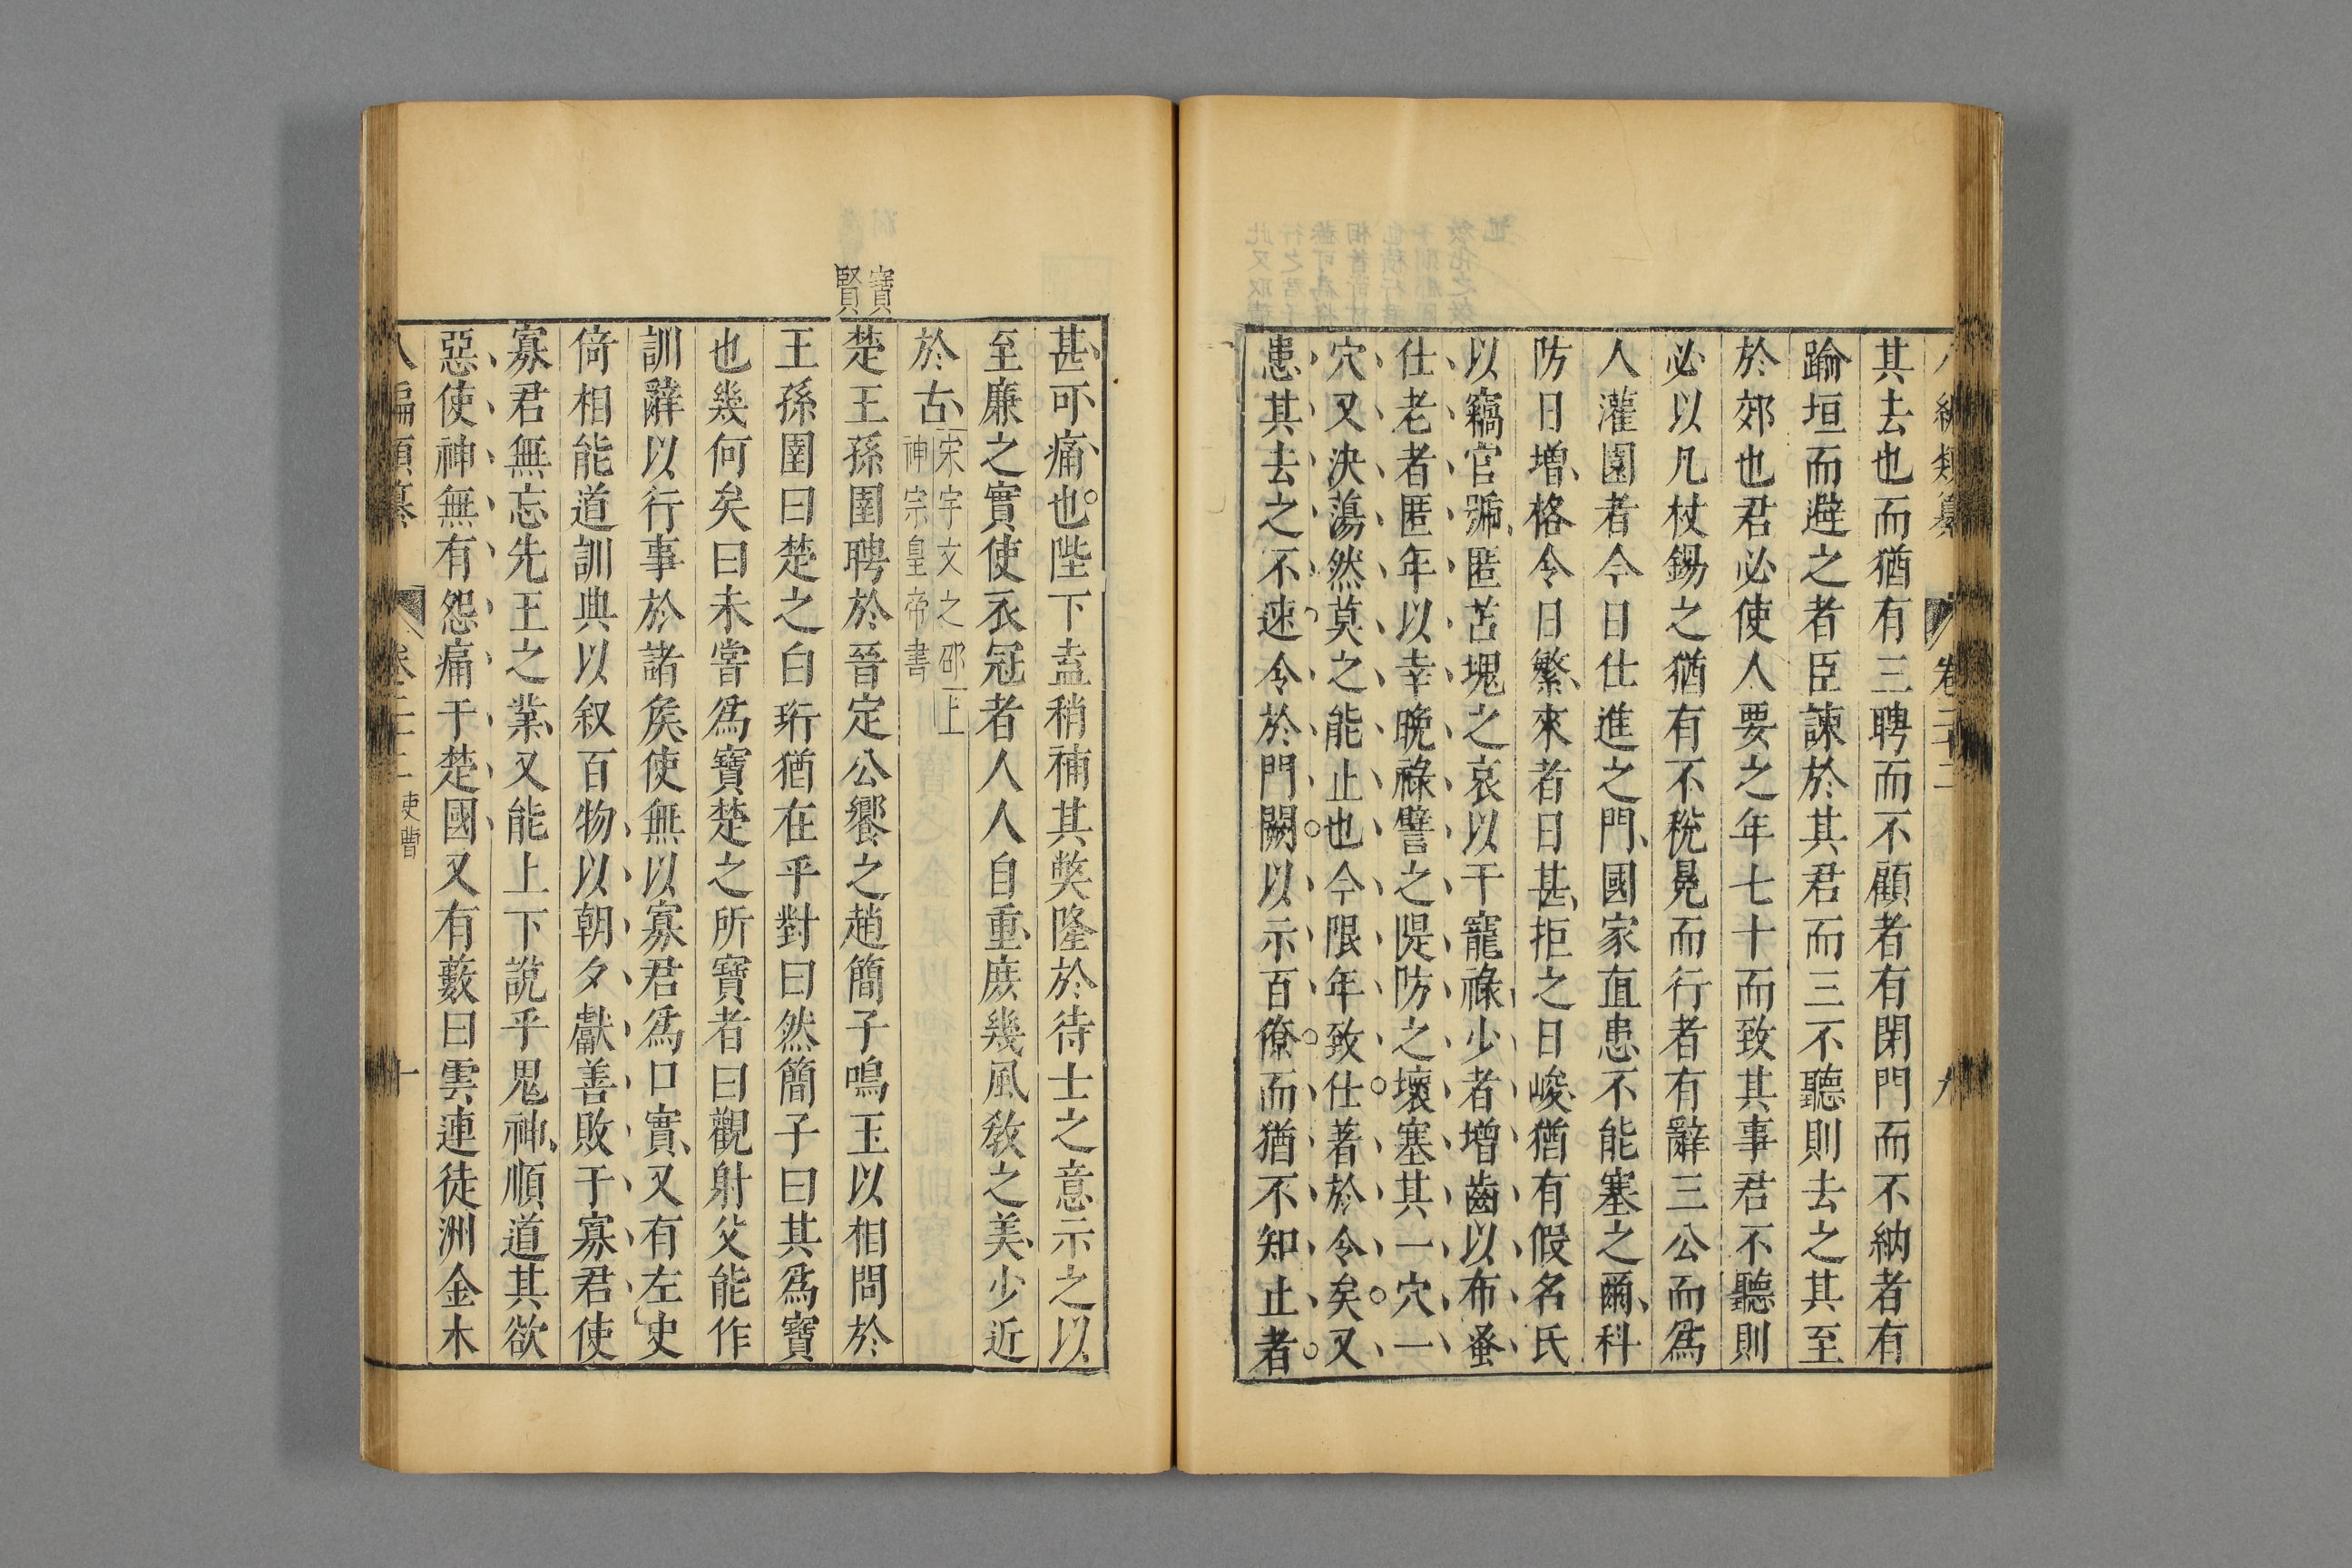 八編類纂 卷二十二 九
其去也而猶有三聘而不顧者有閉門而不納者有
踰垣而避之者臣諫於其君而三不聽則去之其至
於郊也君必使人要之年七十而致其事君不聽則
必以几杖錫之猶有不稅冕而行者有辭三公而爲
人灌園者今日仕進之門國家直患不能塞之爾科
防日增格令日繁來者日甚拒之日峻猶有假名氏
以竊官號匿苫塊之哀以干寵祿少者增齒以布蚤
仕老者匿年以幸晚祿譬之隄防之壞塞其一穴一
穴又決蕩然莫之能止也今限年致仕著於令矣又
患其去之不速令於門闕以示百僚而猶不知止者
甚可痛也陛下盍稍補其獘隆於待士之意示之以
至廉之實使衣冠者人人自重庶幾風敎之美少近
於古宋宇文之邵上
神宗皇帝書
寶
賢
楚王孫圉聘於晉定公饗之趙簡子鳴玉以相問於
王孫圉曰楚之白珩猶在乎對曰然簡子曰其爲寶
也幾何矣曰未嘗爲寶楚之所寶者曰觀射父能作
訓辭以行事於諸矦使無以寡君爲口實又有左史
倚相能道訓典以叙百物以朝夕獻善敗于寡君使
寡君無忘先王之業又能上下說乎鬼神順道其欲
惡使神無有怨痛于楚國又有藪曰雲連徒洲金木
八編類纂 卷二十二 吏曹 十